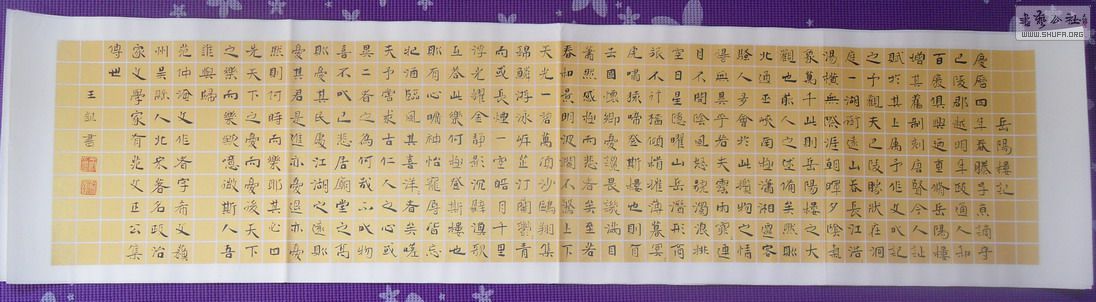 岳陽樓記
慶曆四年春滕子京謫守
巴陵郡越明年政通人和
百廢俱興迺重脩岳陽樓
增其舊制刻唐賢今人詩
賦於其上属予作文以記
之予觀夫巴陵勝狀在洞
庭一湖銜遠山吞長江浩
湯橫無際涯朝暉夕陰氣
象萬千此則岳陽樓之大
觀也前人之述備矣然則
北通巫峽南極瀟湘遷客
騷人多會於此覽物之情
得無異乎若夫霪雨霏連
月不開陰風怒號濁浪排
空日星隱耀山岳潛形商
旅不行檣傾楫摧薄暮冥
虎嘯猿啼登斯樓也則有
去國懷鄉憂讒畏譏滿目
蕭然感極而悲者矣至若
春和景明波瀾不驚上下
天光一碧萬頃沙鷗翔集
錦鱗游泳岸芷汀蘭郁青
而或長煙一空皓月千里
浮光耀金靜影沉璧漁歌
互答此樂何極登斯樓也
則有心曠神怡寵辱皆忘
把酒臨風其喜洋者矣嗟
夫予嘗求古仁人之心或
異二者之為何哉不以物
喜不以己悲居廟堂之高
則憂其民處江湖之遠則
憂其君是進亦憂退亦憂
然則何時而樂耶其必曰
先天下之憂而憂後天下
之樂而樂歟噫微斯人吾
誰與歸
范仲淹文作者字希文蘇
州吳人北宋著名政治
家文學家有范文正公集
傳世
王 書
書藝公社
WWW.SHUFA.ORG